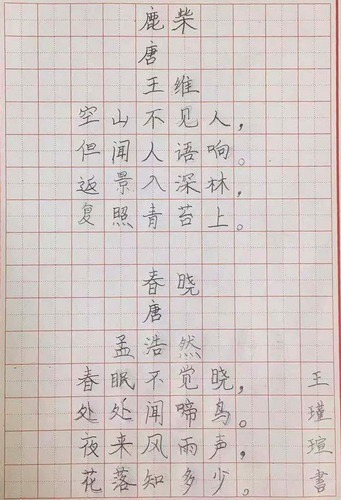 鹿柴
唐
王维
空山不见人，
但闻人语响。
返景入深林，
复照青苔上。
春晓
唐
孟浩然
春眠不觉晓，
处处闻啼鸟。
夜来风雨声，
花落知多少。
王瑾瑄書